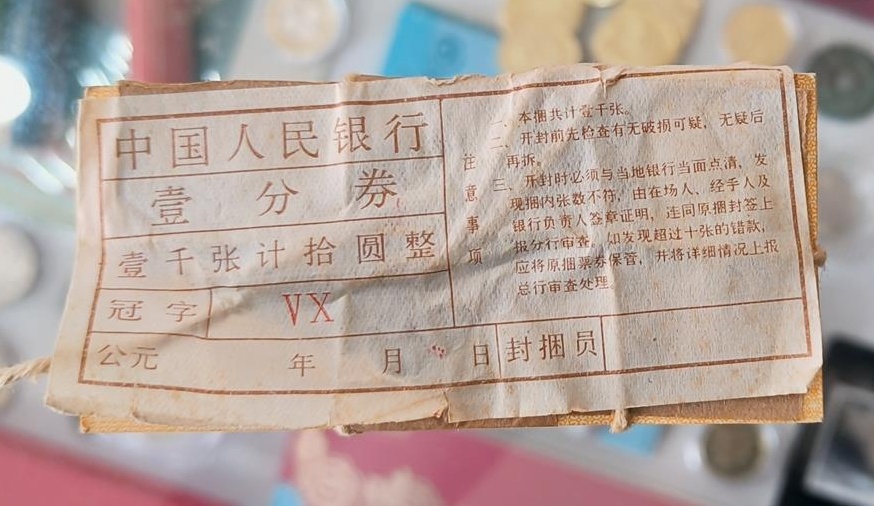 中国人民银行
壹分券
壹千张计拾圆整
冠字 VX
公元 年 月 日 封捆员
注意事项
一、本捆共计壹千张。
二、开封前先检查有无破损可疑，无疑后
再拆。
三、开封时必须与当地银行当面点清，发
现捆内张数不符，由在场人、经手人及
银行负责人签章证明，连同原捆封签上
报分行审查。如发现超过十张的错款，
应将原捆票券保管，并将详细情况上报
总行审查处理。